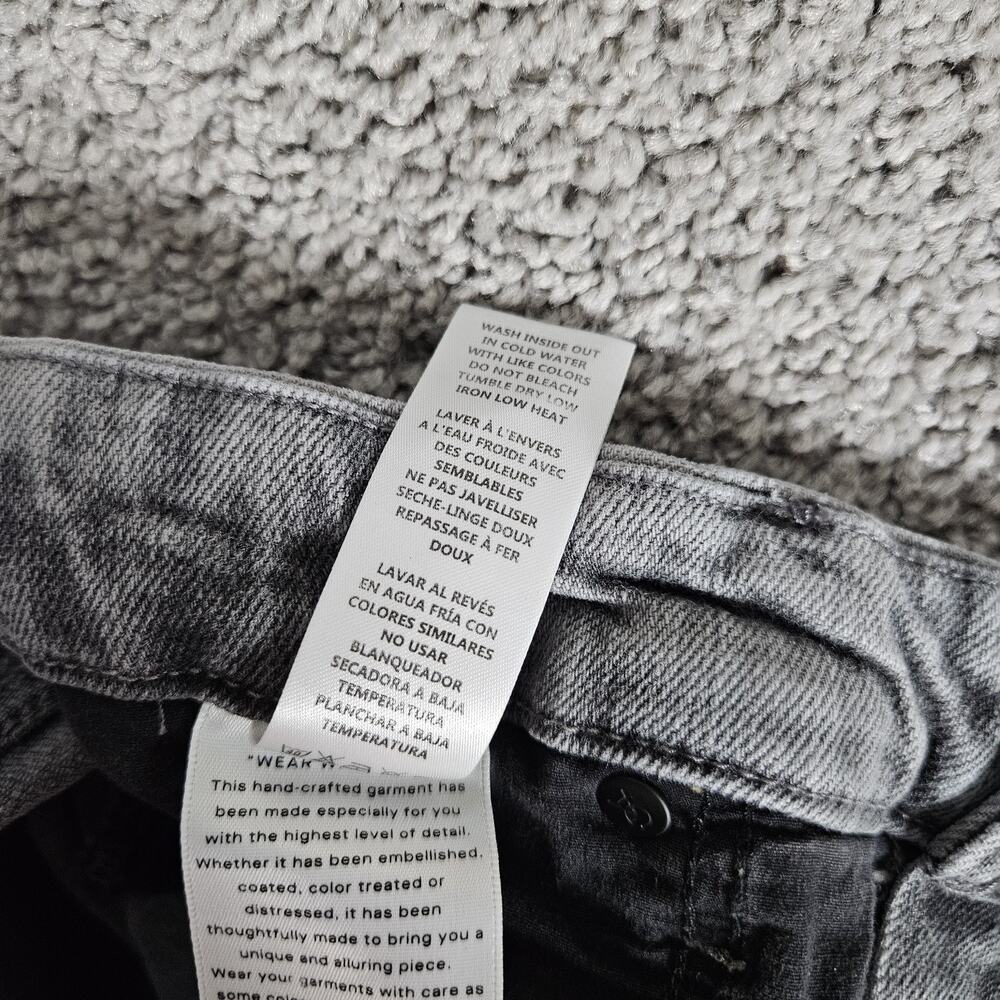 WASH INSIDE OUT
IN COLD WATER
WITH LIKE COLORS
DO NOT BLEACH
TUMBLE DRY LOW
IRON LOW HEAT
LAVER À L'ENVERS
A L'EAU FROIDE AVEC
DES COULEURS
SEMBLABLES
NE PAS JAVELLISER
SECHE-LINGE DOUX
REPASSAGE À FER
DOUX
LAVAR AL REVÉS
EN AGUA FRÍA CON
COLORES SIMILARES
NO USAR
BLANQUEADOR
SECADORA A BAJA
TEMPERATURA
PLANCHAR A BAJA
TEMPERATURA
"WEAR
This hand-crafted garment has
been made especially for you
with the highest level of detail.
Whether it has been embellished,
coated, color treated or
distressed, it has been
thoughtfully made to bring you a
unique and alluring piece.
Wear your garments with care as
some